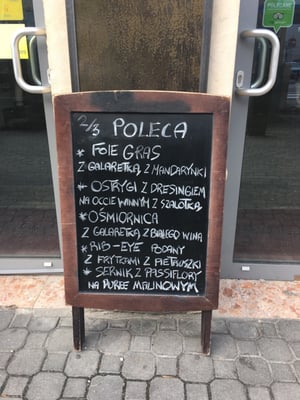 2/3 POLECA
* FOIE GRAS
Z GALARETKĄ Z MANDARYNKI
* OSTRYGI Z DRESINGIEM
NA OCCIE WINNYM Z SZALOTKĄ
* OŚMIORNICA
Z GALARETKĄ Z BIAŁEGO WINA
* RIB-EYE PODANY
Z FRYTKAMI Z PIETRUSZKI
* SERNIK Z PASSIFLORY
NA PUREE MALINOWYM